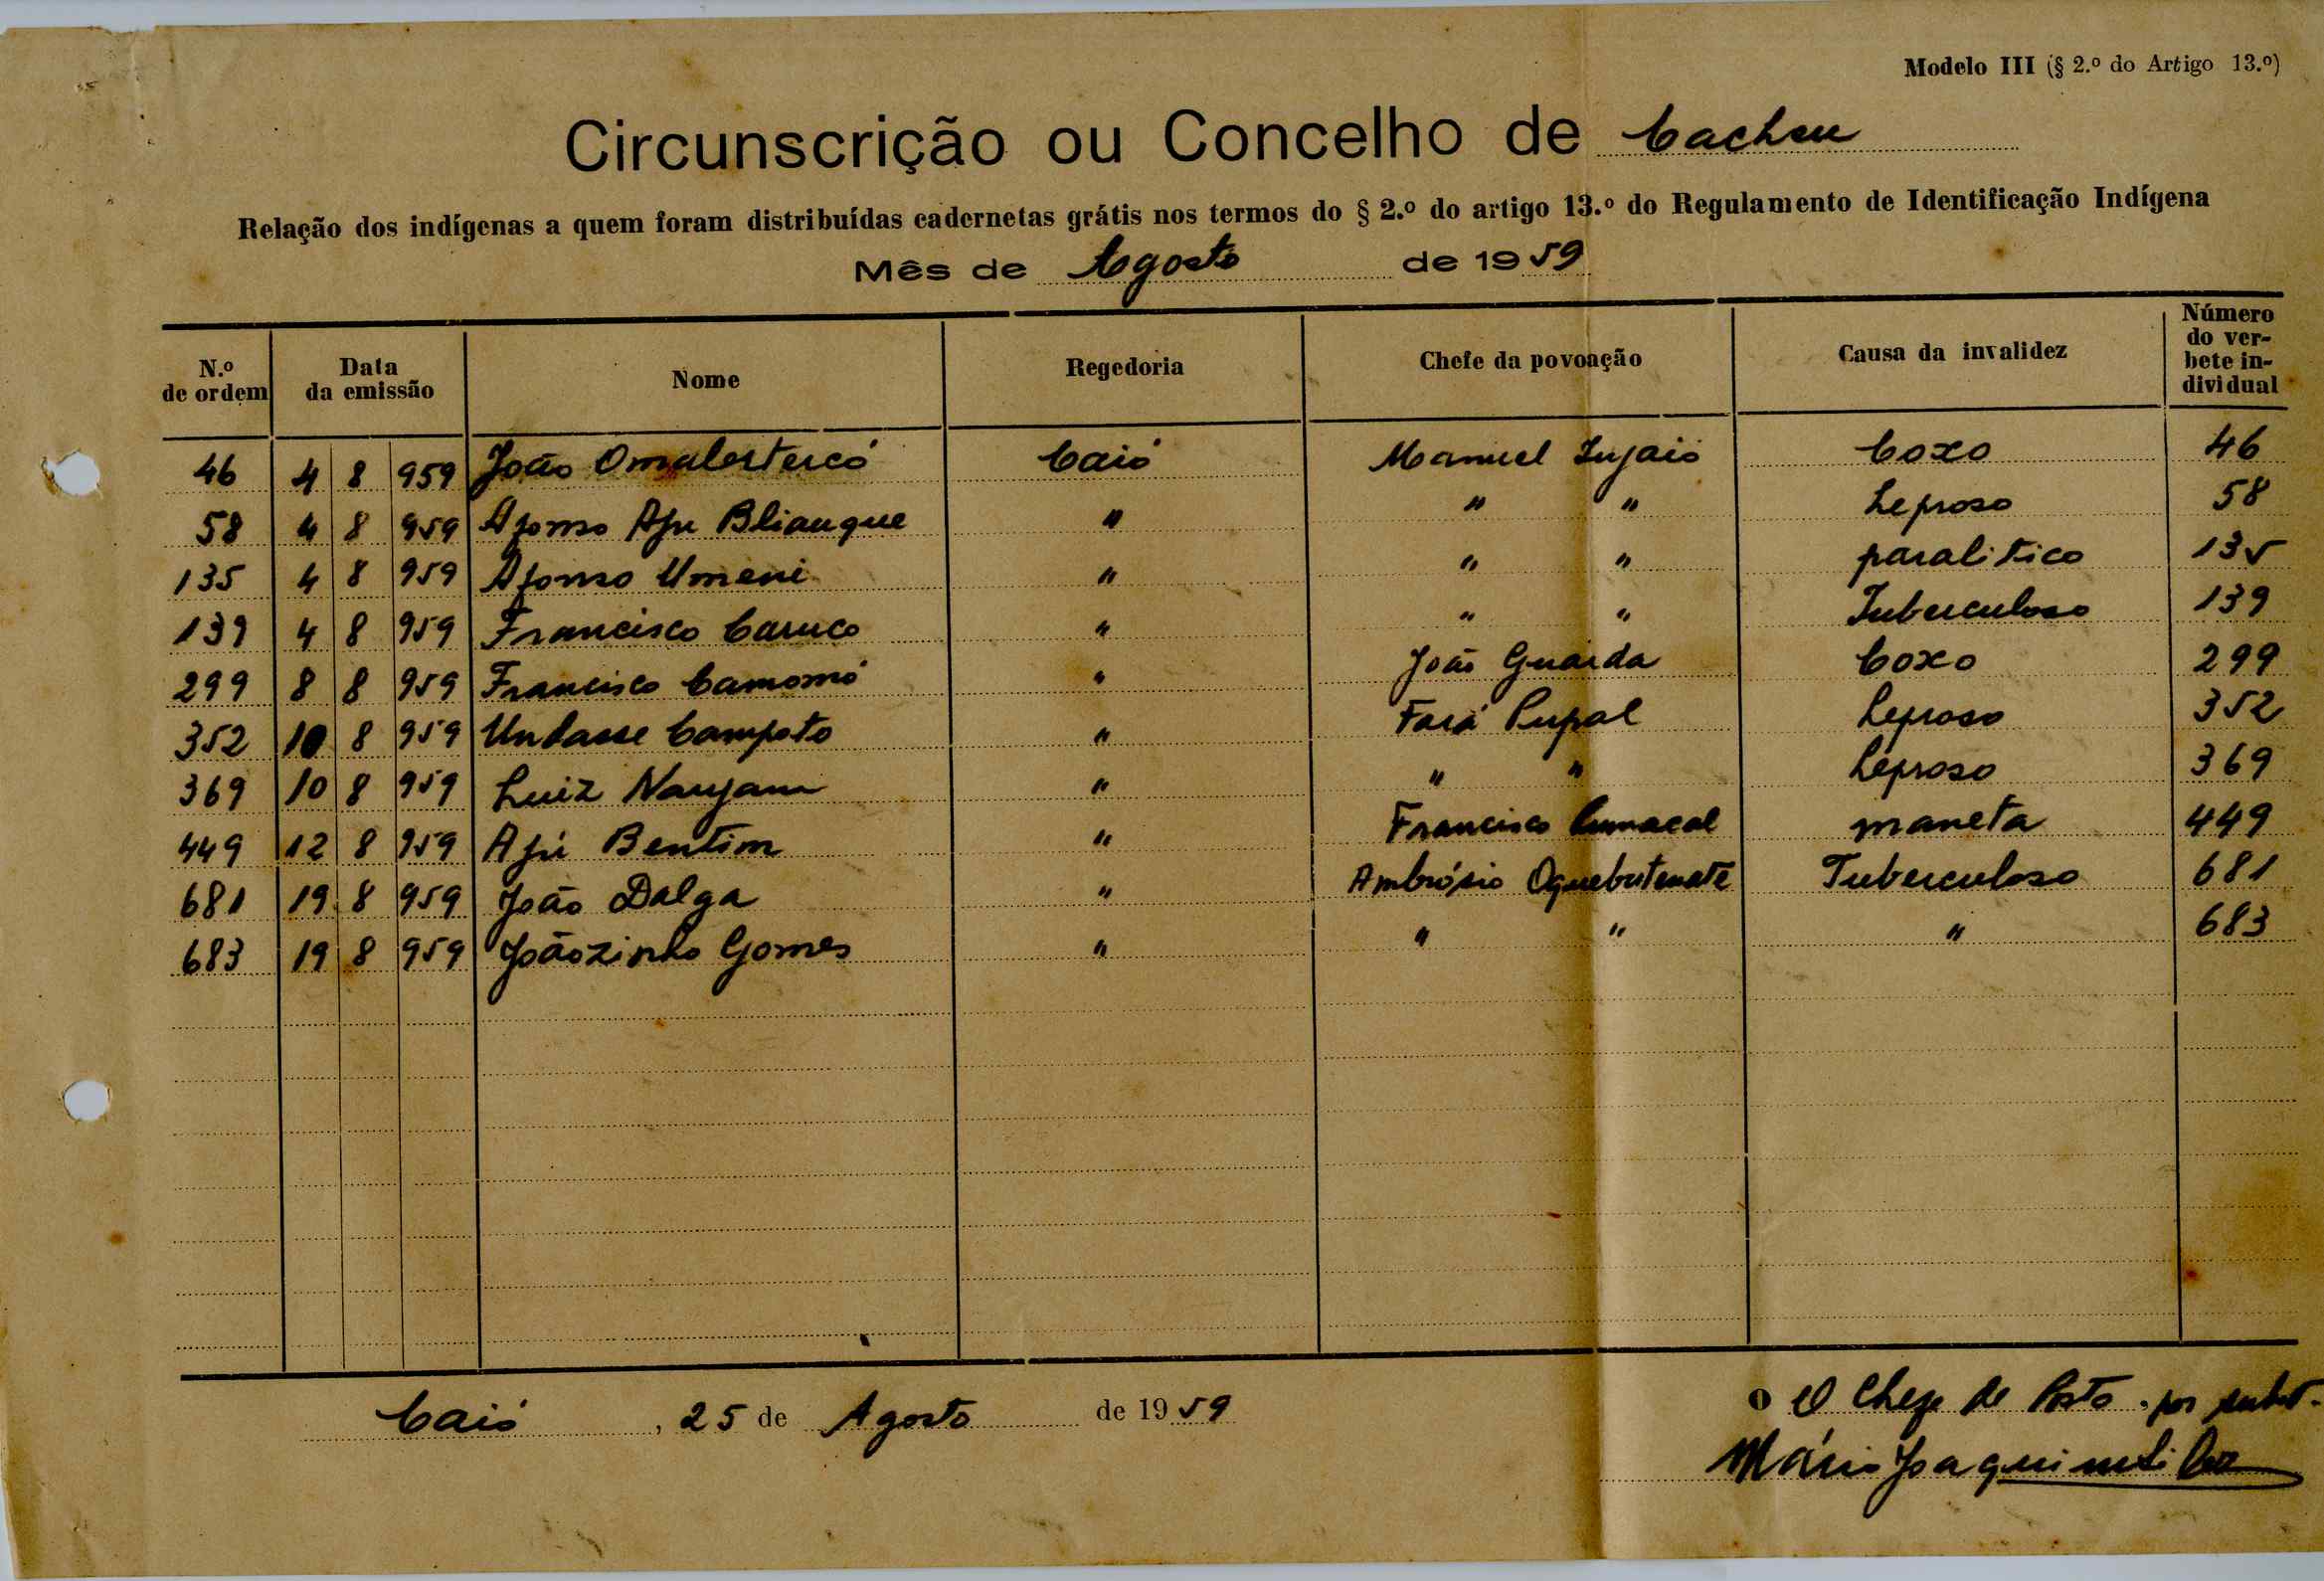 Modelo III (§ 2.º do Artigo 13.º)
Circunscrição ou Concelho de Cacheu
Relação dos indígenas a quem foram distribuídas cadernetas grátis nos termos do § 2.º do artigo 13.º do Regulamento de Identificação Indígena
Mês de Agosto de 1959
N.º de ordem Data da emissão Nome Regedoria Chefe da povoação Causa da invalidez Número do verbete individual
46 4 8 959 João Caió Manuel Coxo 46
58 4 8 959 Afonso Apu Blianque " " " Leproso 58
135 4 8 959 Afonso Umeni " " " paralitico 135
139 4 8 959 Francisco Caruco " " " Tuberculoso 139
299 8 8 959 Francisco Camomó " João Guarda Coxo 299
352 10 8 959 Undasse Campoto " Fará Pupal Leproso 352
369 10 8 959 Luiz " " " Leproso 369
449 12 8 959 Apú Bentim " Francisco maneta 449
681 19 8 959 João Dalga " Ambrósio Tuberculoso 681
683 19 8 959 Joãozinho Gomes " " " " 683
Caió, 25 de Agosto de 1959
O Chefe de Posto, por subst.
Mário Joaquim